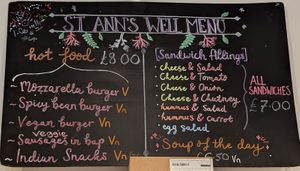 ST ANN'S WELL MENU
hot food £8.00
~ Mozzarella burger V
~ Spicy bean burger Vn
~ Vegan burger Vn
veggie
~ Sausages in bap Vn
~ Indian Snacks Vn
[Sandwich fillings]
• Cheese & Salad
• Cheese & Tomato
• Cheese & Onion
• Cheese & Chutney
• hummus & Salad
• hummus & Carrot
• egg salad
ALL
SANDWICHES
£7.00
Soup of the day
Vn